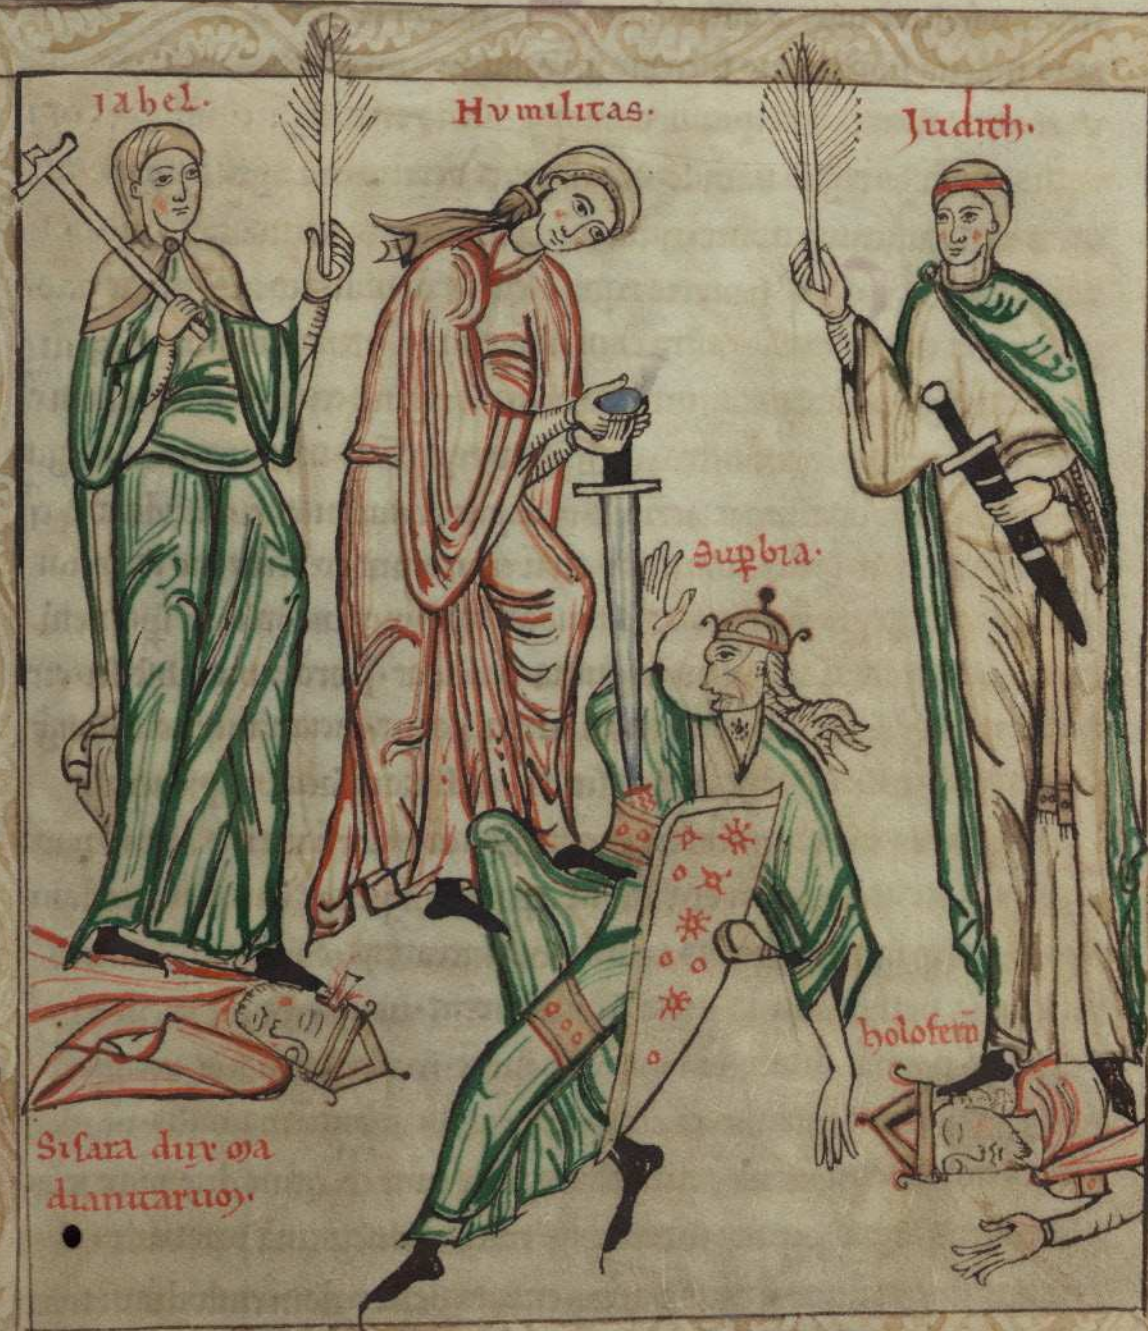 Iahel.
Humilitas.
Judith.
Suꝑbia.
holofern̄
Sisara dux ma
dianitarum.